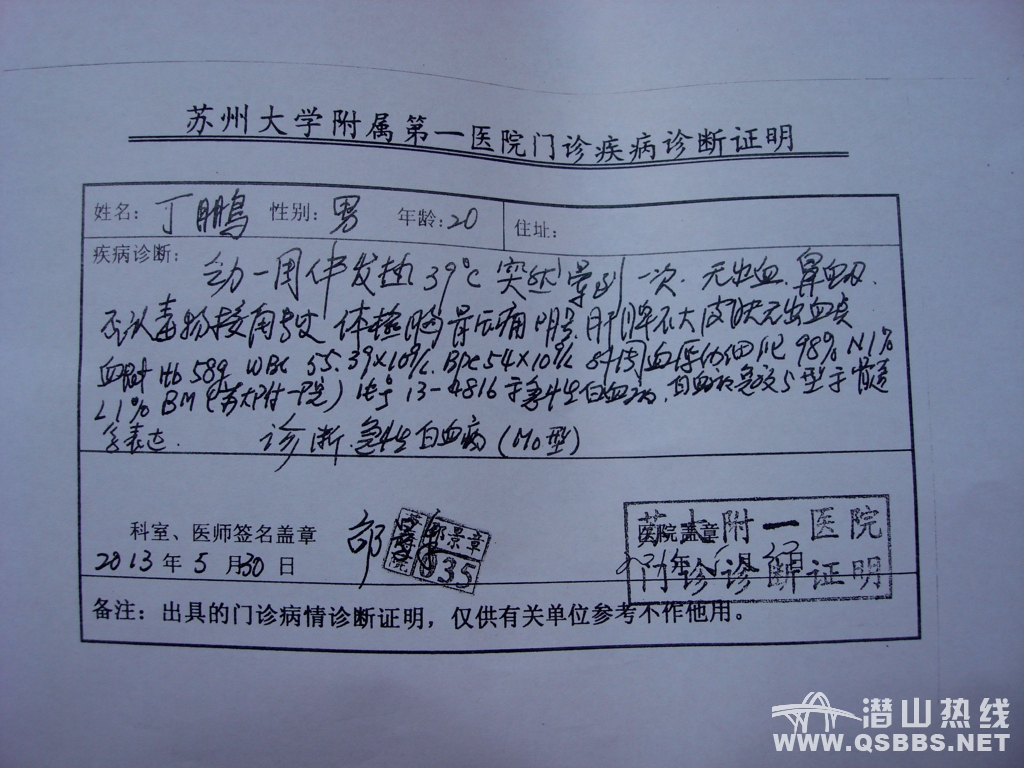 苏州大学附属第一医院门诊疾病诊断证明
姓名: 丁鹏 性别: 男 年龄: 20 住址:
疾病诊断:
一周伴发热39℃ 突然晕倒一次. 无出血.
毒物接触史 体检胸骨后痛 肝脾不大 皮肤无出血点
血 Hb 58g WBC 55.39×10⁹/L. BPC 54×10⁹/L 98% N1%
L1% BM (苏大附一院) 13-4816 急性白血病.
表达. 诊断. 急性白血病 (M0型)
科室、医师签名盖章 邵 邵景章 035
2013 年 5 月 30 日
医院盖章
苏大附一医院
门诊诊断证明
备注: 出具的门诊病情诊断证明，仅供有关单位参考不作他用。
潜山热线
WWW.QSBBS.NET